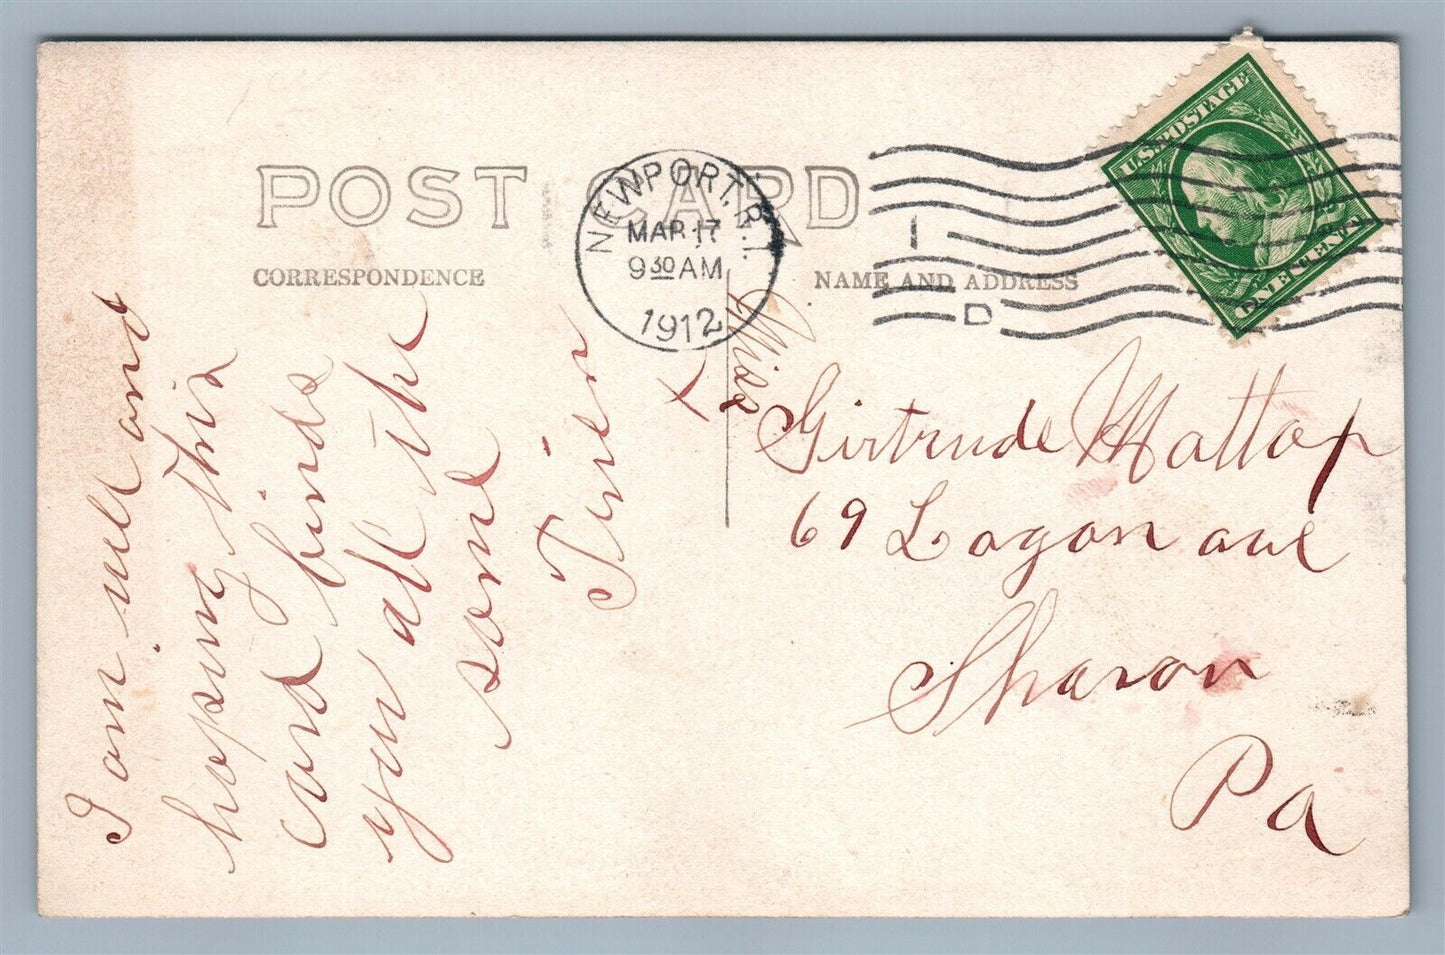 POST CARD
CORRESPONDENCE
NAME AND ADDRESS
NEWPORT, R.I.
MAR 17
9 30 AM
1912
1
D
U.S. POSTAGE
ONE CENT
I am well and
hoping this
card finds
you all the
same
X
Miss
Girtrude Mattap
69 Logan ave
Sharon
Pa